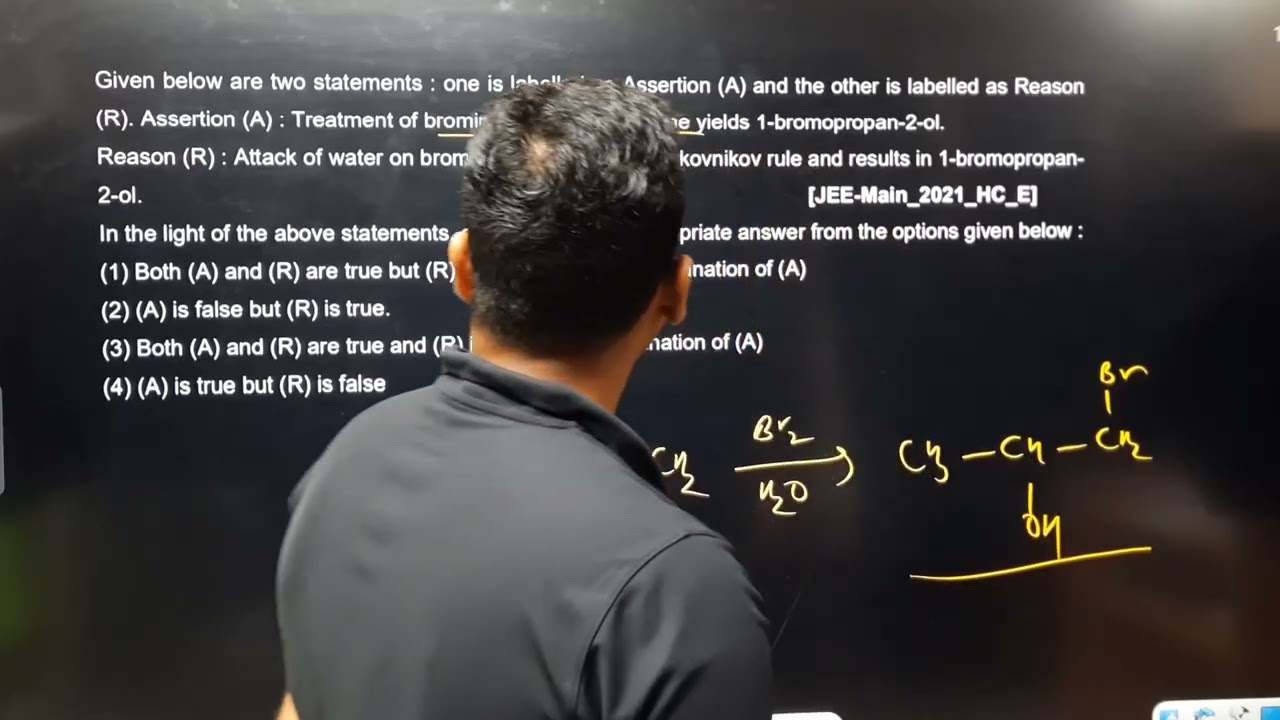 Given below are two statements : one is Assertion (A) and the other is labelled as Reason
(R). Assertion (A) : Treatment of yields 1-bromopropan-2-ol.
Reason (R) : Attack of water on rule and results in 1-bromopropan-
2-ol. [JEE-Main_2021_HC_E]
In the light of the above statements answer from the options given below :
(1) Both (A) and (R) are true but (R) of (A)
(2) (A) is false but (R) is true.
(3) Both (A) and (R) are true and (R) of (A)
(4) (A) is true but (R) is false
Br
Br2
CH2 CH3 – CH – CH2
H2O
OH